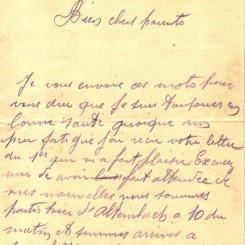 Biens chers parents
Je vous envoie ces mots pour
vous dire que je suis toujours en
bonne santé quoique un
peu fatigué j'ai reçu votre lettre
du 1er qui m'a fait plaisir Excusez
moi de avoir fait attendre de
mes nouvelles nous sommes
partis hier d'Altenbach a 10 du
matin et sommes arrives a